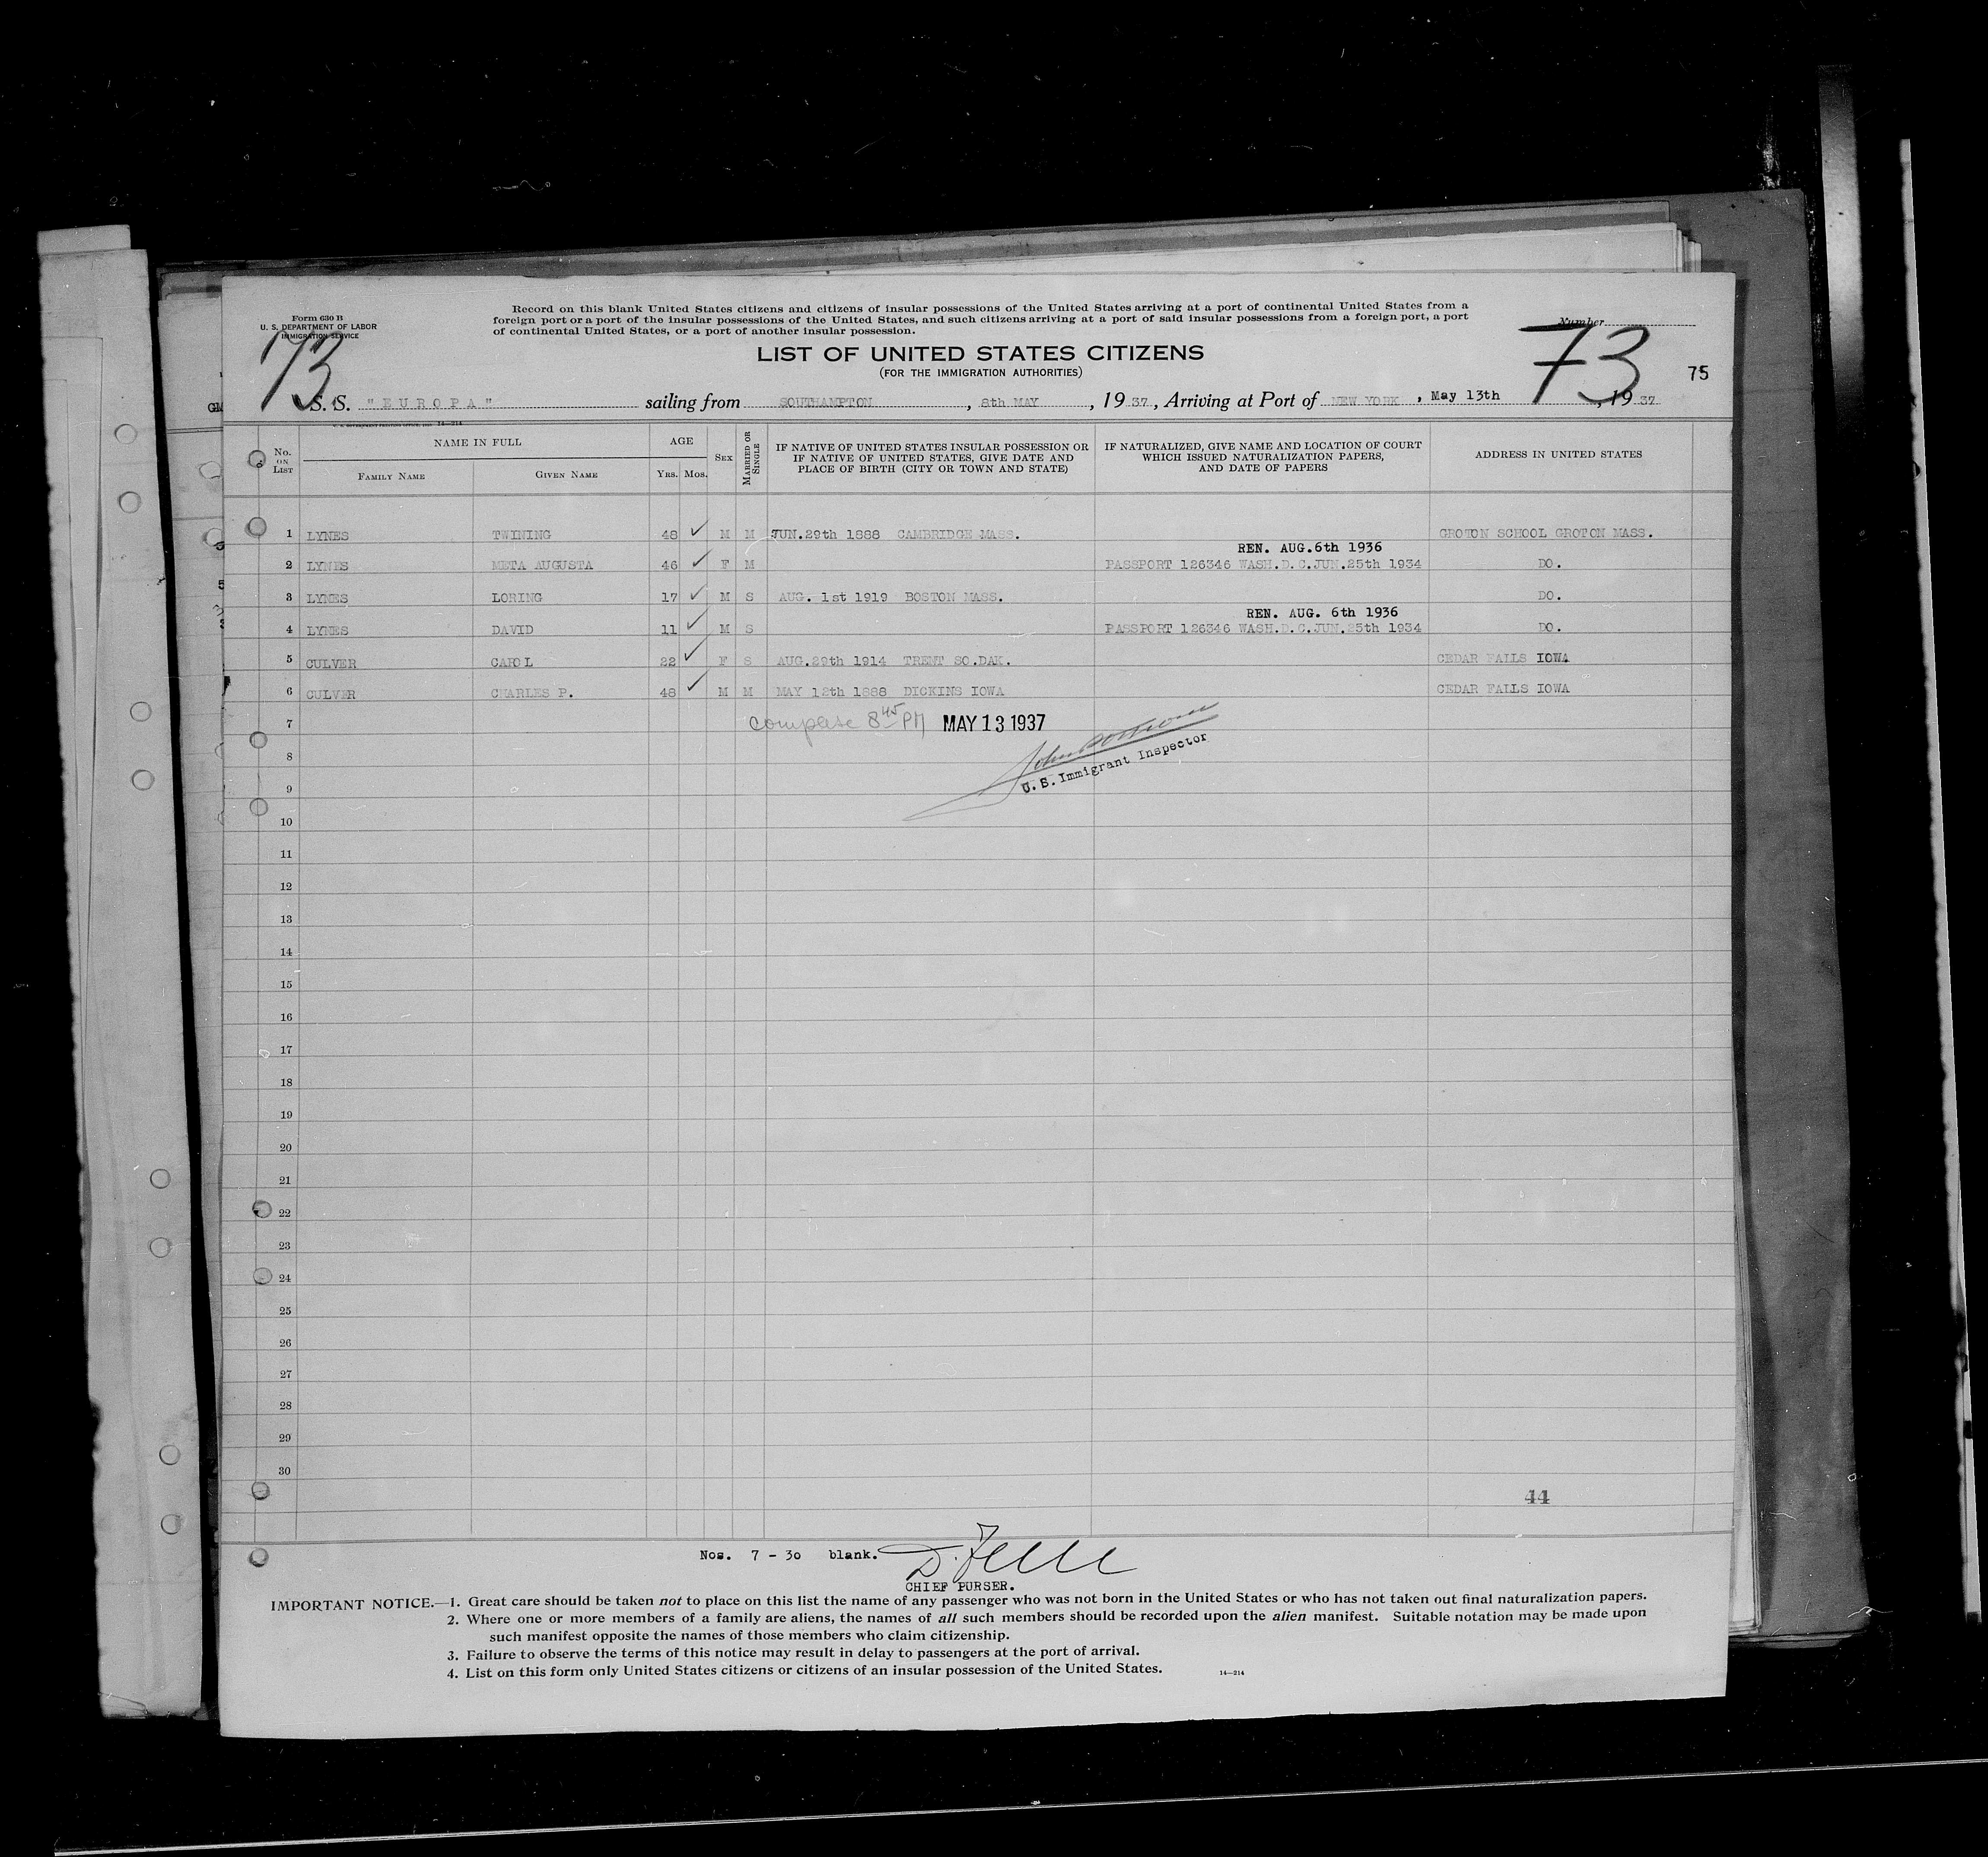 Form 630 B
U. S. DEPARTMENT OF LABOR
IMMIGRATION SERVICE
Record on this blank United States citizens and citizens of insular possessions of the United States arriving at a port of continental United States from a
foreign port or a port of the insular possessions of the United States, and such citizens arriving at a port of said insular possessions from a foreign port, a port
of continental United States, or a port of another insular possession.
Number
73
73
75
LIST OF UNITED STATES CITIZENS
(FOR THE IMMIGRATION AUTHORITIES)
S. S. "EUROPA" sailing from SOUTHAMPTON, 8th MAY, 1937, Arriving at Port of NEW YORK, May 13th, 1937
No. ON LIST NAME IN FULL FAMILY NAME GIVEN NAME AGE YRS. MOS. SEX MARRIED OR SINGLE IF NATIVE OF UNITED STATES INSULAR POSSESSION OR IF NATIVE OF UNITED STATES, GIVE DATE AND PLACE OF BIRTH (CITY OR TOWN AND STATE) IF NATURALIZED, GIVE NAME AND LOCATION OF COURT WHICH ISSUED NATURALIZATION PAPERS, AND DATE OF PAPERS ADDRESS IN UNITED STATES
1 LYNES TWINING 48 ✓ M M JUN.29th 1888 CAMBRIDGE MASS. GROTON SCHOOL GROTON MASS.
REN. AUG.6th 1936
2 LYNES META AUGUSTA 46 ✓ F M PASSPORT 126346 WASH.D.C.JUN.25th 1934 DO.
3 LYNES LORING 17 ✓ M S AUG. 1st 1919 BOSTON MASS. DO.
REN. AUG. 6th 1936
4 LYNES DAVID 11 ✓ M S PASSPORT 126346 WASH.D.C.JUN.25th 1934 DO.
5 CULVER CAROL 22 ✓ F S AUG.29th 1914 TRENT SO.DAK. CEDAR FALLS IOWA
6 CULVER CHARLES P. 48 ✓ M M MAY 12th 1888 DICKINS IOWA CEDAR FALLS IOWA
7 complete 8 45 PM MAY 13 1937
8
U. S. Immigrant Inspector
9
10
11
12
13
14
15
16
17
18
19
20
21
22
23
24
25
26
27
28
29
30
44
Nos. 7 - 30 blank.
CHIEF PURSER.
IMPORTANT NOTICE.—1. Great care should be taken not to place on this list the name of any passenger who was not born in the United States or who has not taken out final naturalization papers.
2. Where one or more members of a family are aliens, the names of all such members should be recorded upon the alien manifest. Suitable notation may be made upon
such manifest opposite the names of those members who claim citizenship.
3. Failure to observe the terms of this notice may result in delay to passengers at the port of arrival.
4. List on this form only United States citizens or citizens of an insular possession of the United States. 14—214